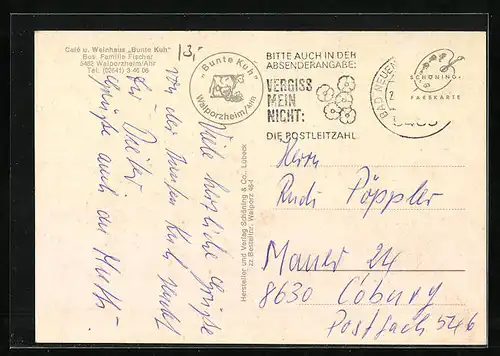 Café u. Weinhaus „Bunte Kuh"
Bes. Familie Fischer
5482 Walporzheim/Ahr
Tel. (02641) 3 46 06
13,-
„Bunte Kuh"
Walporzheim/Ahr
BITTE AUCH IN DER
ABSENDERANGABE:
VERGISS
MEIN
NICHT:
DIE POSTLEITZAHL
BAD NEUEN
SCHÖNING
FARBKARTE
Viele herzliche Grüße
von der Bunten Kuh sendet
Dieter
Grüße auch an Mutti.
Hersteller und Verlag Schöning & Co., Lübeck
zz. Bestellnr. Walporz 46-I
Herrn
Rudi Pöppler
Mauer 24
8630 Coburg
Postfach 546